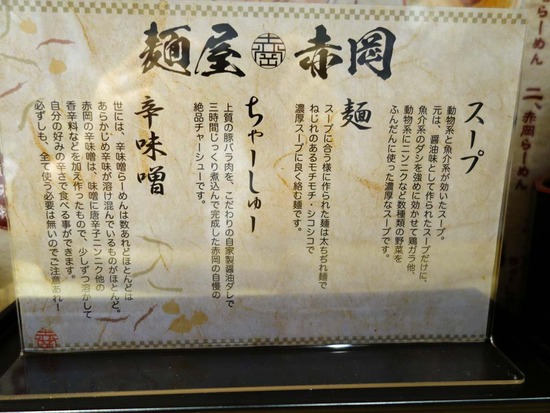 麺屋 赤岡
スープ
動物系と魚介系が効いたスープ。
元は、醤油味として作られたスープだけに、
魚介系のダシを強めに効かせて鶏ガラ他、
動物系にニンニクなど数種類の野菜を
ふんだんに使った濃厚なスープです。
麺
スープに合う様に作られた麺は太ちぢれ麺で
ねじれのあるモチモチ・シコシコで
濃厚スープに良く絡む麺です。
ちゃーしゅー
上質の豚バラ肉を、こだわりの自家製醤油ダレで
三時間じっくり煮込んで完成した赤岡の自慢の
絶品チャーシューです。
辛味噌
世には、辛味噌らーめんは数あれどほとんどは
あらかじめ辛味が溶け混んでいるものがほとんど。
赤岡の辛味噌は、味噌に唐辛子ニンニク他の
香辛料などを加え作ったもので、少しずつ溶かして
自分の好みの辛さで食べる事ができます。
必ずしも、全て使う必要は無いのでご注意あれー
らーめん
二、赤岡らーめん